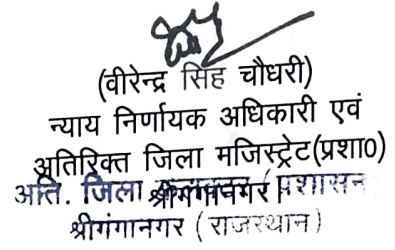 (वीरेन्द्र सिंह चौधरी)
न्याय निर्णायक अधिकारी एवं
अतिरिक्त जिला मजिस्ट्रेट(प्रशा0)
श्रीगंगानगर।
अति. जिला (प्रशासन
श्रीगंगानगर (राजस्थान)